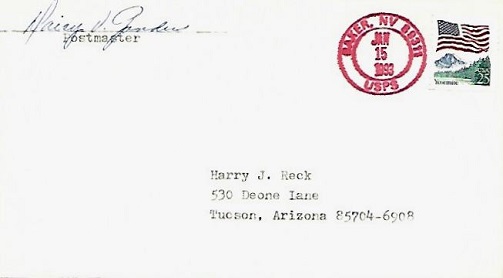 Postmaster
BAKER, NV 89311
JAN
15
1993
USPS
USA
25
Yosemite
Harry J. Reck
530 Deone Lane
Tucson, Arizona 85704-6908